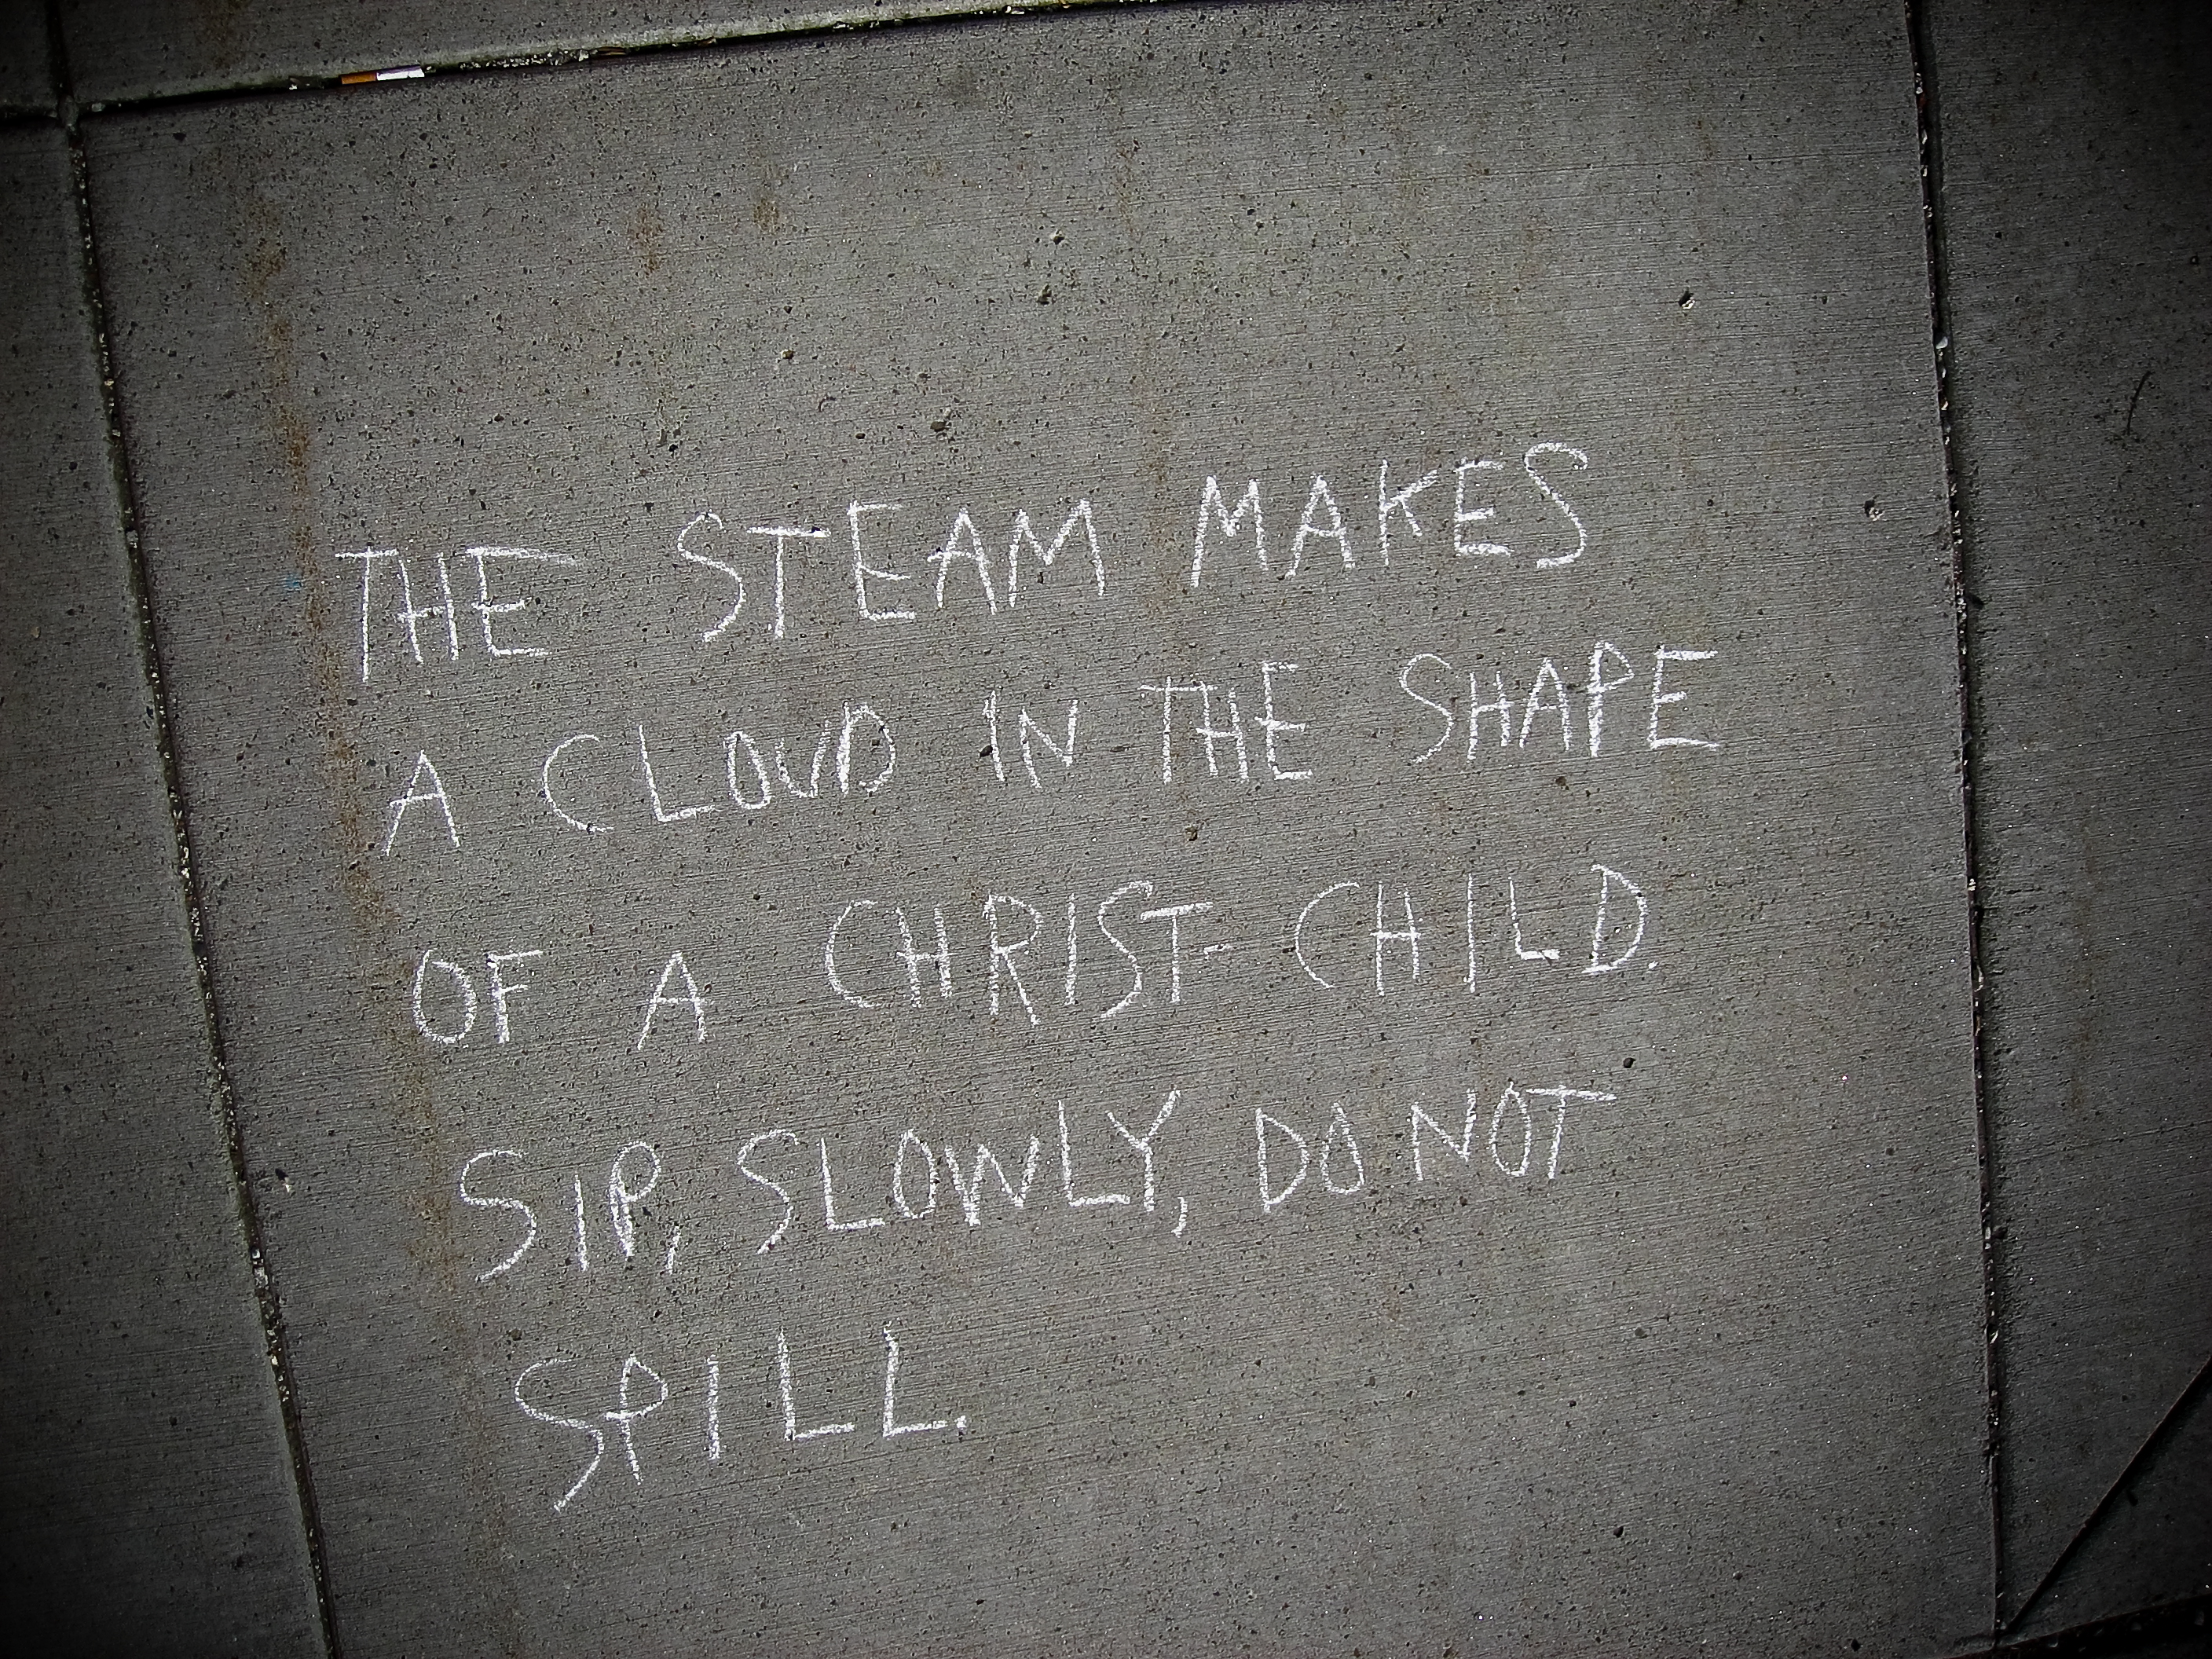 THE STEAM MAKES
A CLOUD IN THE SHAPE
OF A CHRIST-CHILD.
SIP, SLOWLY, DO NOT
SPILL.